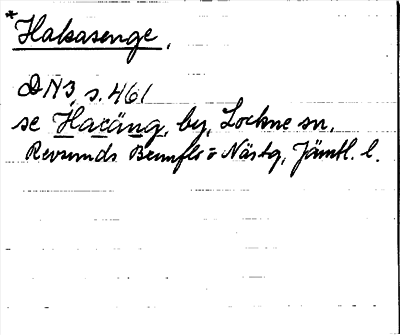 *Hakasenge,
DN3, s. 461
se Haxäng, by, Lockne sn,
Revsunds Brunflo = Näs tg, Jämtl. l.